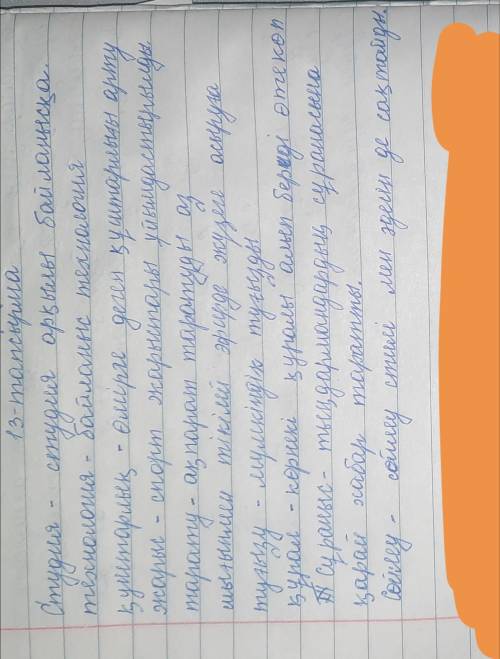 13-тапсырма
Студия - студия арқылы байланысқа.
технология - байланыс технология
құштарлық - өмірге деген құштарлығын арту
жарыс - спорт жарыстары ұйымдастырылды
тарату - ақпарат таратуды аз
шығынмен тікелей эфирде жүзеге асыруға
туғызу - мүмкіндік туғызды
құрал - көрнекі құралы алып берді өте көп
Сұраныс - тыңдармандардың сұранысына
қарай хабар таратты.
Сөйлеу - сөйлеу стилі мен әдебін де сақтайды.